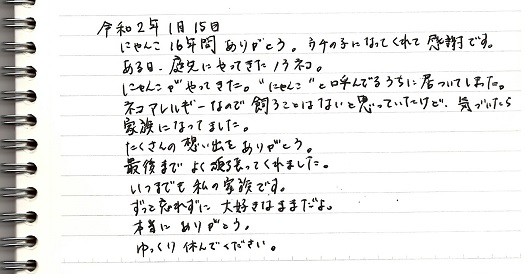 令和2年1月15日
にゃんこ 16年間 ありがとう。ウチの子になってくれて 感謝です。
ある日、庭先にやってきた ノラネコ。
にゃんこが やってきた。"にゃんこ"と呼んでるうちに 居ついてしまった。
ネコアレルギーなので 飼うことはないと思っていたけど、気づいたら
家族になってました。
たくさんの 想い出を ありがとう。
最後まで よく頑張ってくれました。
いつまでも 私の家族です。
ずっと忘れずに 大好きなままだよ。
本当に ありがとう。
ゆっくり 休んでください。